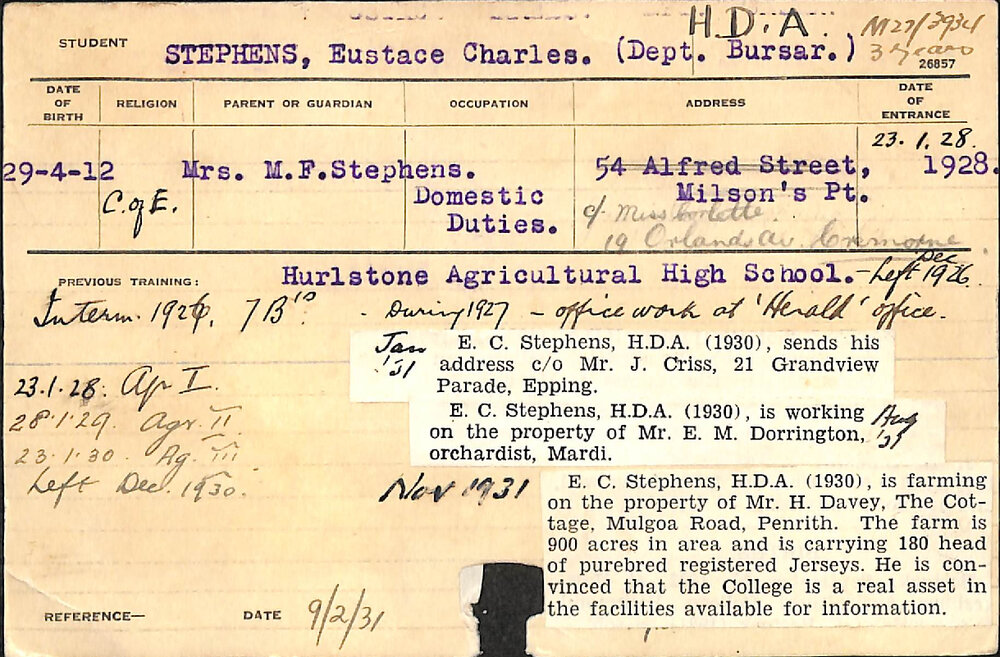 H.D.A. M27/3934
STUDENT STEPHENS, Eustace Charles. (Dept. Bursar.) 3 years
26857
DATE OF BIRTH RELIGION PARENT OR GUARDIAN OCCUPATION ADDRESS DATE OF ENTRANCE
23.1.28.
29-4-12 Mrs. M.F.Stephens. 54 Alfred Street, 1928.
C. of E. Domestic Milson's Pt.
Duties. c/ Miss
19 Orlando Av. Cremorne
PREVIOUS TRAINING: Hurlstone Agricultural High School. - Left Dec 1926.
Interm. 1926, 7B's. - During 1927 - office work at 'Herald' office.
Jan '31 E. C. Stephens, H.D.A. (1930), sends his
address c/o Mr. J. Criss, 21 Grandview
Parade, Epping.
23.1.28. Agr I.
28.1.29. Agr. II
23.1.30. Ag. III
Left Dec. 1930.
E. C. Stephens, H.D.A. (1930), is working Aug '31
on the property of Mr. E. M. Dorrington,
orchardist, Mardi.
Nov 1931
E. C. Stephens, H.D.A. (1930), is farming
on the property of Mr. H. Davey, The Cot-
tage, Mulgoa Road, Penrith. The farm is
900 acres in area and is carrying 180 head
of purebred registered Jerseys. He is con-
vinced that the College is a real asset in
the facilities available for information.
REFERENCE— DATE 9/2/31